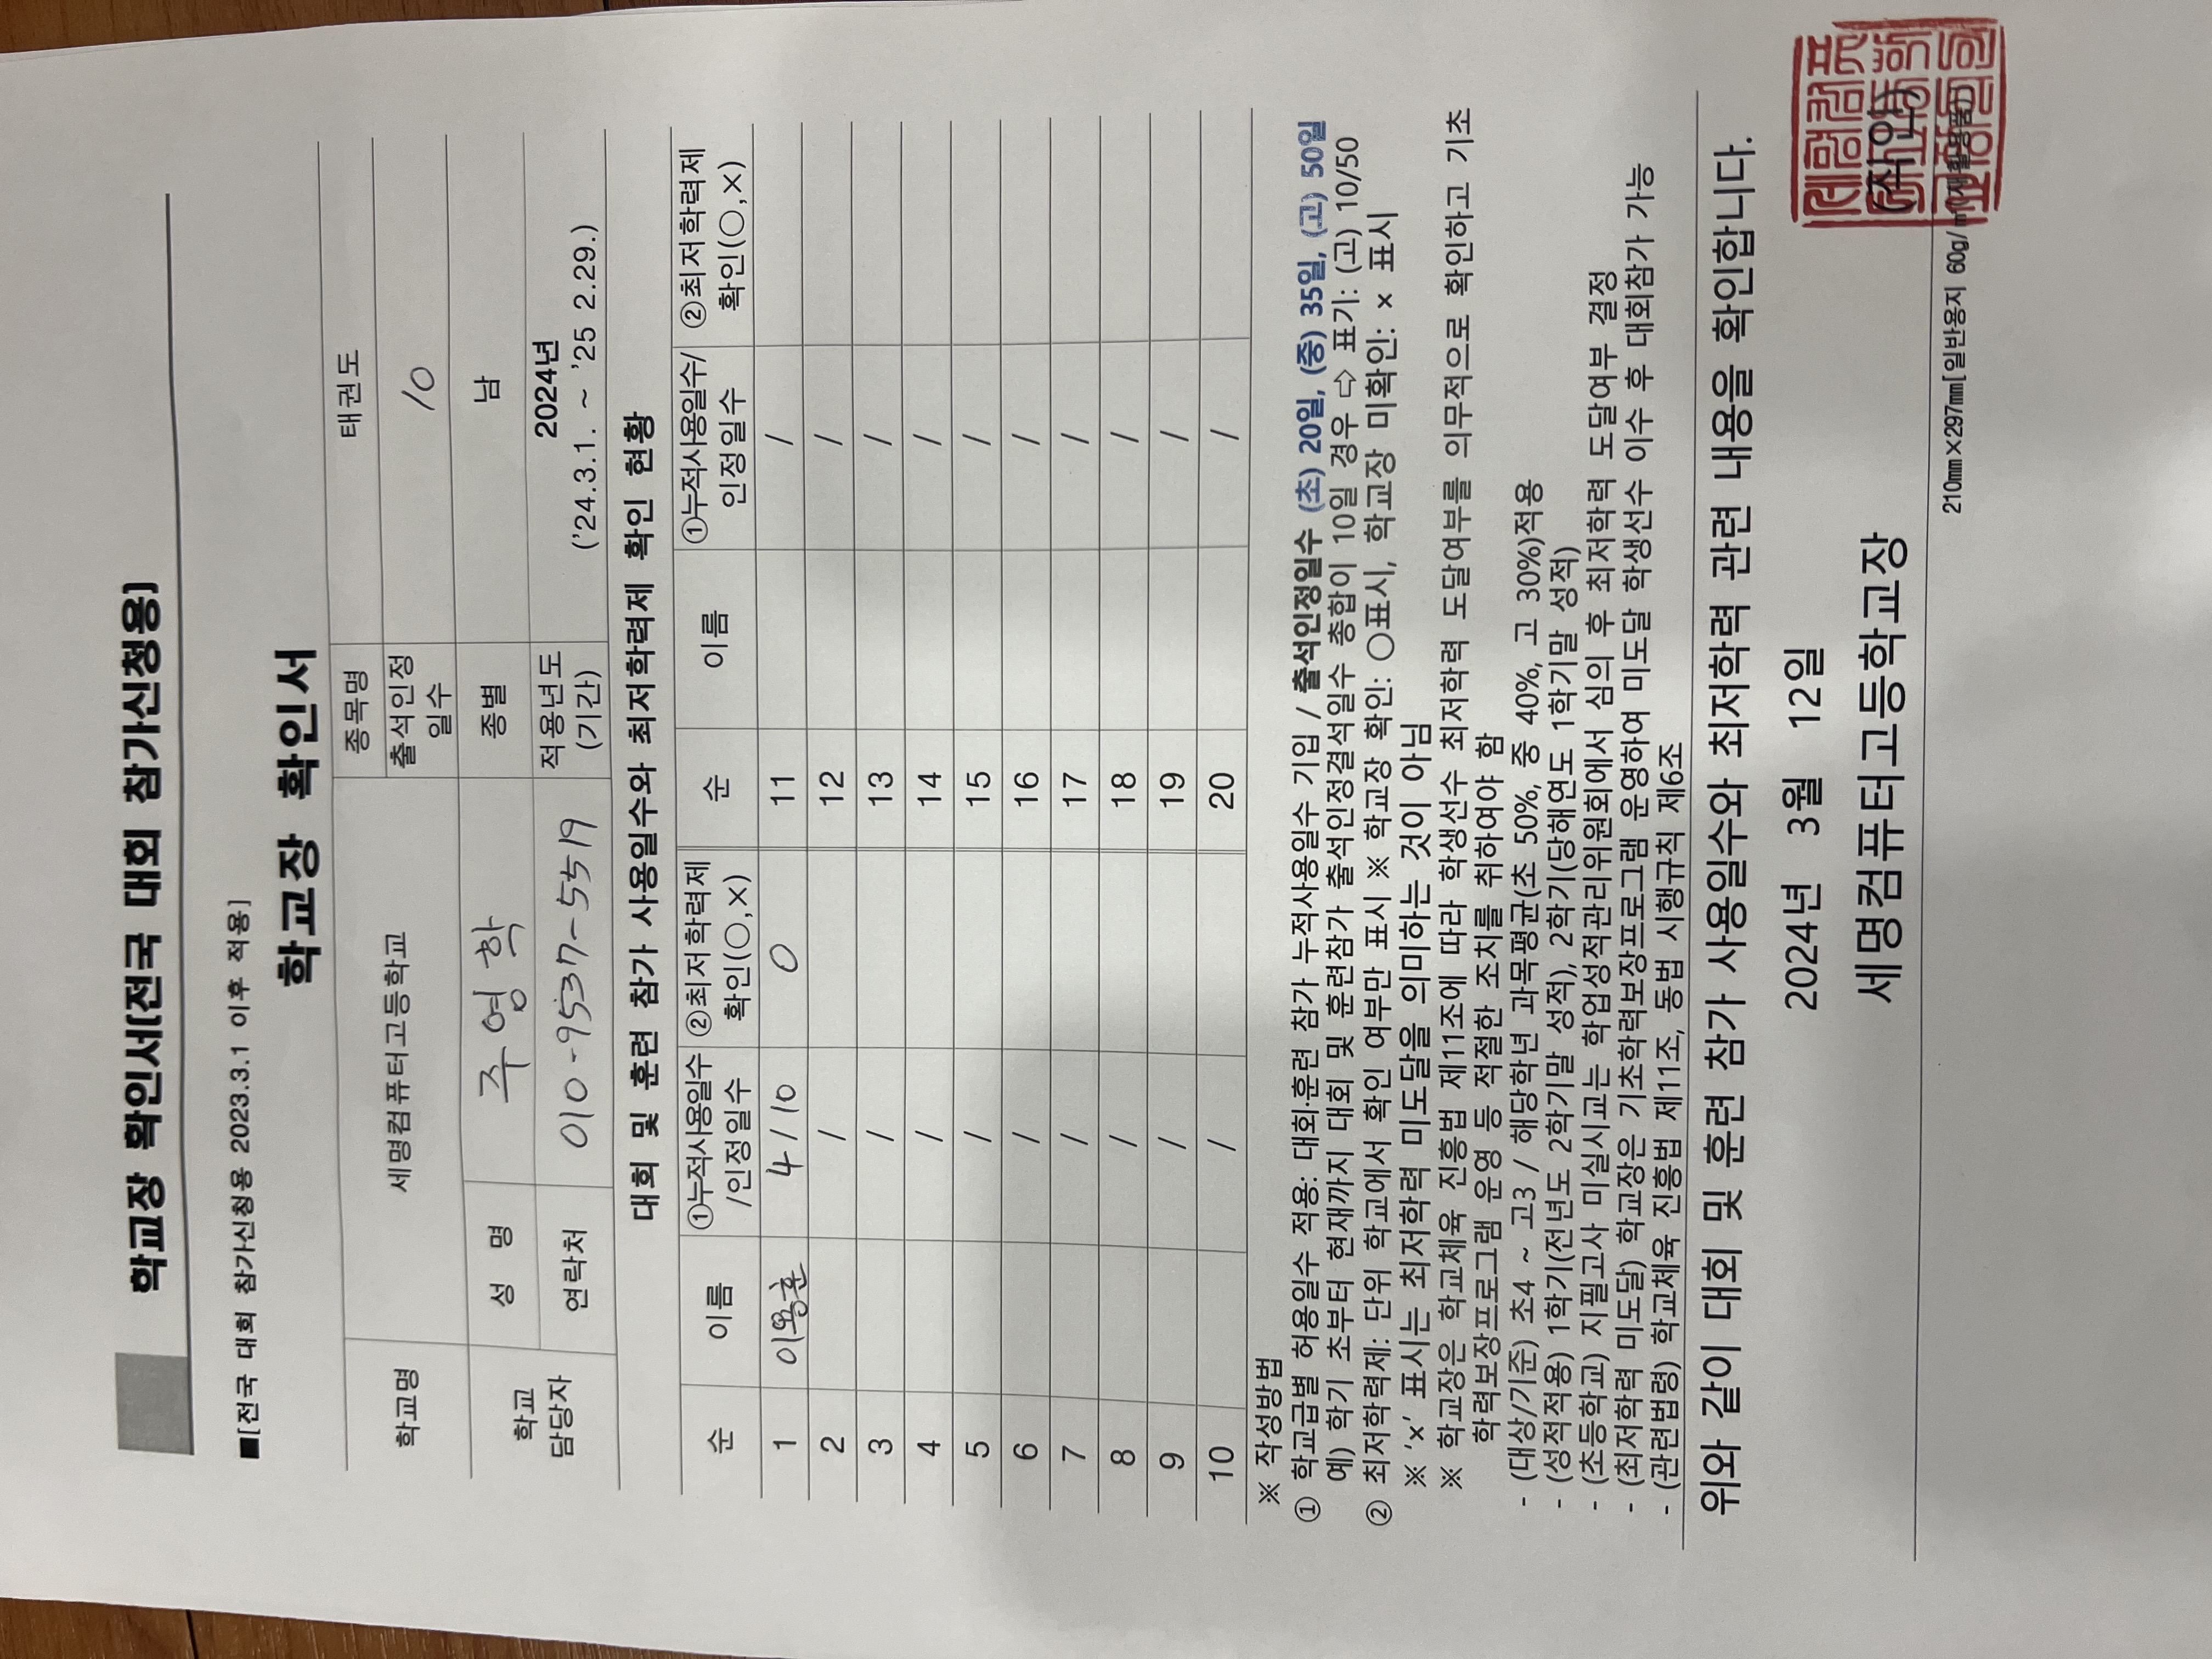 학교장 확인서(전국 대회 참가신청용)
■[전국 대회 참가신청용 2023.3.1 이후 적용]
학교장 확인서
학교명 세명컴퓨터고등학교 종목명 태권도
출석인정일수 10
학교 담당자 성 명 주영학 종별 남
연락처 010-9537-5519 적용년도(기간) 2024년
('24.3.1. ~ '25 2.29.)
대회 및 훈련 참가 사용일수와 최저학력제 확인 현황
순 이름 ①누적사용일수/인정일수 ②최저학력제 확인(○,×) 순 이름 ①누적사용일수/인정일수 ②최저학력제 확인(○,×)
1 4/10 0 11 /
2 / 12 /
3 / 13 /
4 / 14 /
5 / 15 /
6 / 16 /
7 / 17 /
8 / 18 /
9 / 19 /
10 / 20 /
※ 작성방법
① 학교급별 허용일수 적용: 대회·훈련 참가 누적사용일수 기입 / 출석인정일수 (초) 20일, (중) 35일, (고) 50일
예) 학기 초부터 현재까지 대회 및 훈련참가 출석인정결석일수 총합이 10일 경우 ⇨ 표기: (고) 10/50
② 최저학력제: 단위 학교에서 확인 여부만 표시 ※ 학교장 확인: ○표시, 학교장 미확인: × 표시
※ '×' 표시는 최저학력 미도달을 의미하는 것이 아님
※ 학교장은 학교체육 진흥법 제11조에 따라 학생선수 최저학력 도달여부를 의무적으로 확인하고 기초
학력보장프로그램 운영 등 적절한 조치를 취하여야 함
- (대상/기준) 초4 ~ 고3 / 해당학년 과목평균(초 50%, 중 40%, 고 30%)적용
- (성적적용) 1학기(전년도 2학기말 성적), 2학기(당해연도 1학기말 성적)
- (초등학교) 지필고사 미실시교는 학업성적관리위원회에서 심의 후 최저학력 도달여부 결정
- (최저학력 미도달) 학교장은 기초학력보장프로그램 운영하여 미도달 학생선수 이수 후 대회참가 가능
- (관련법령) 학교체육 진흥법 제11조, 동법 시행규칙 제6조
위와 같이 대회 및 훈련 참가 사용일수와 최저학력 관련 내용을 확인합니다.
2024년 3월 12일
세명컴퓨터고등학교장 (직인)
210mm×297mm[일반용지 60g/㎡(재활용품)]